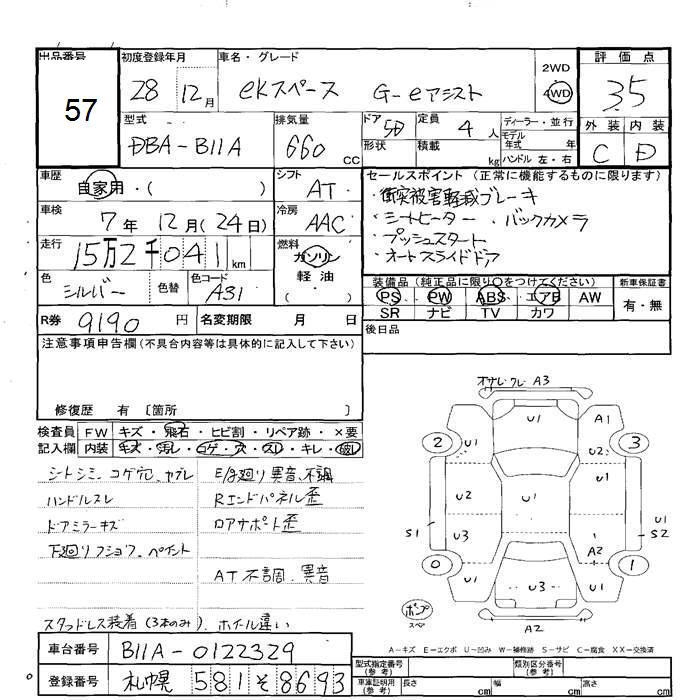 出品番号 57
初度登録年月 28 12月
車名・グレード ekスペース G-eアシスト
2WD
4WD
評価点 35
外装 内装
C D
型式 DBA-B11A
排気量 660 cc
ドア 5D
形状
定員 4人
積載 kg
ディーラー・並行
モデル年式 年
ハンドル 左・右
車歴 自家用・( )
シフト AT
車検 7年 12月(24日)
冷房 AAC
走行 15万2千041km
燃料 ガソリン
軽油
( )
色 シルバー
色替
色コード A31
セールスポイント(正常に機能するものに限ります)
・衝突被害軽減ブレーキ
・シートヒーター・バックカメラ
・プッシュスタート
・オートスライドドア
装備品(純正品に限り○をつけてください)
新車保証書
PS PW ABS エアB AW
有・無
SR ナビ TV カワ
R券 9190円
名変期限 月 日
後日品
注意事項申告欄(不具合内容等は具体的に記入して下さい)
修復歴 有 [箇所 ]
検査員 FW キズ・飛石・ヒビ割・リペア跡・×要
記入欄 内装 キズ・汚レ・コゲ・穴・スレ・キレ・破レ
シートシミ、コゲ穴、ヤブレ
ハンドルスレ
ドアミラーキズ
下廻りフショク、ペイント
E/g廻り異音、不調
Rエンドパネル歪
ロアサポート歪
AT不調、異音
スタッドレス装着(3本のみ)、ホイル違い
オサレ・ワレ A3
U1
A1
2
U1
U2
3
U2
U1
S1
U3
U1
S2
A2
0
U1
U3
U1
1
A2
ポンプ
スペア
A-キズ E-エクボ U-凹み W-補修跡 S-サビ C-腐食 XX-交換済
車台番号 B11A-0122329
登録番号 札幌 581 そ 8693
型式指定番号(参考)
類別区分番号(参考)
車庫証明用(参考)
長さ cm 幅 cm 高さ cm